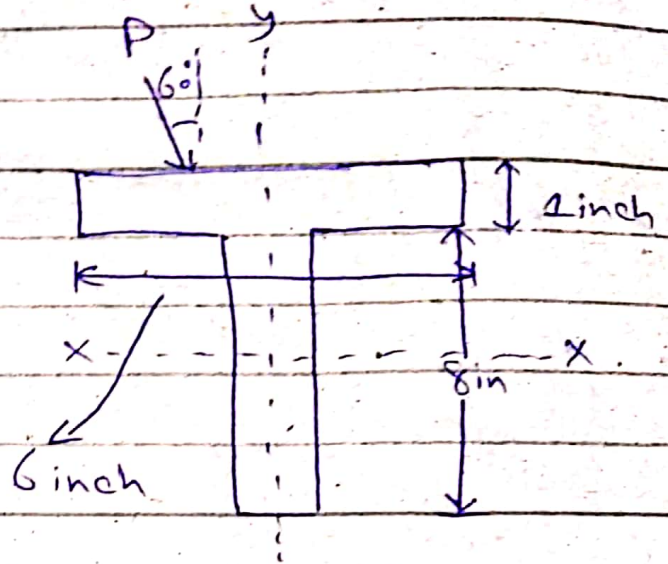 P
y
6°
1inch
x
x
8in
6 inch